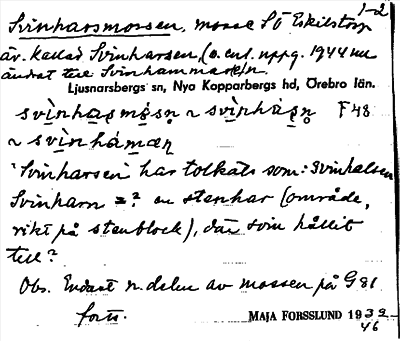 1-2
Svinharsmossen, mosse SÖ Eskilstorp
äv. kallad Svinharsen, (o. enl. uppg. 1944 nu
ändrat till Svinhammaren.
Ljusnarsbergs sn, Nya Kopparbergs hd, Örebro län.
F 48
"Svinharsen" har tolkats som: Svinhalsen
Svinharn = ? en stenhar (område,
rikt på stenblock), där svin hållit
till?
Obs. Endast n. delen av mossen på G 81
forts. MAJA FORSSLUND 1939
46